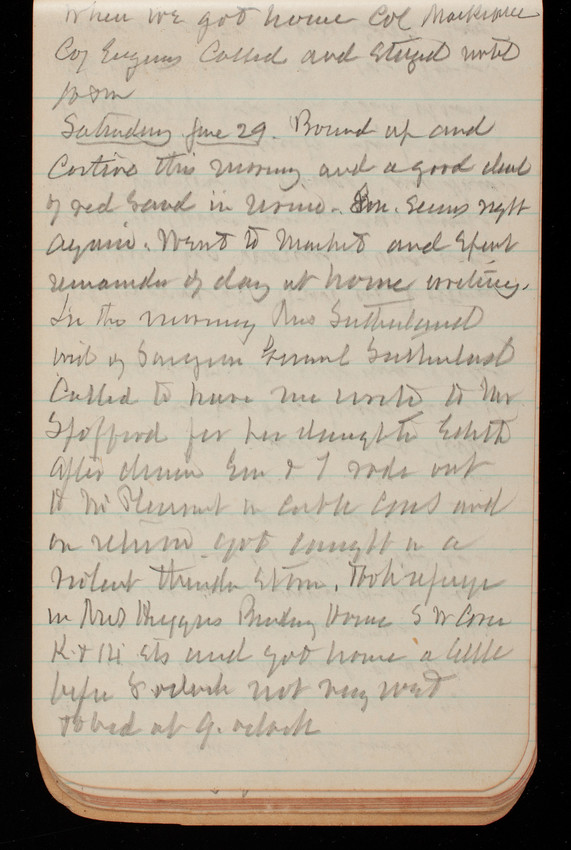 When we got home Col Mackenzie
Coy Engrs Called and stayed until
10 pm
Saturday June 29. Bound up and
Costive this morning and a good deal
of red sand in urine. Em. seems right
again. Went to Market and spent
remainder of day at home writing.
In the morning Mrs Sutherland
wid of Surgeon General Sutherland
Called to have me write to Mr
Spofford for her daughter Edith
After dinner Em & I rode out
to Mt Pleasant in cable cars and
on return got caught in a
violent thunder storm. Took refuge
in Mrs Huggins Boarding House S W Corner
K & 14 sts and got home a little
before 8 oclock not very wet
To bed at 9. oclock